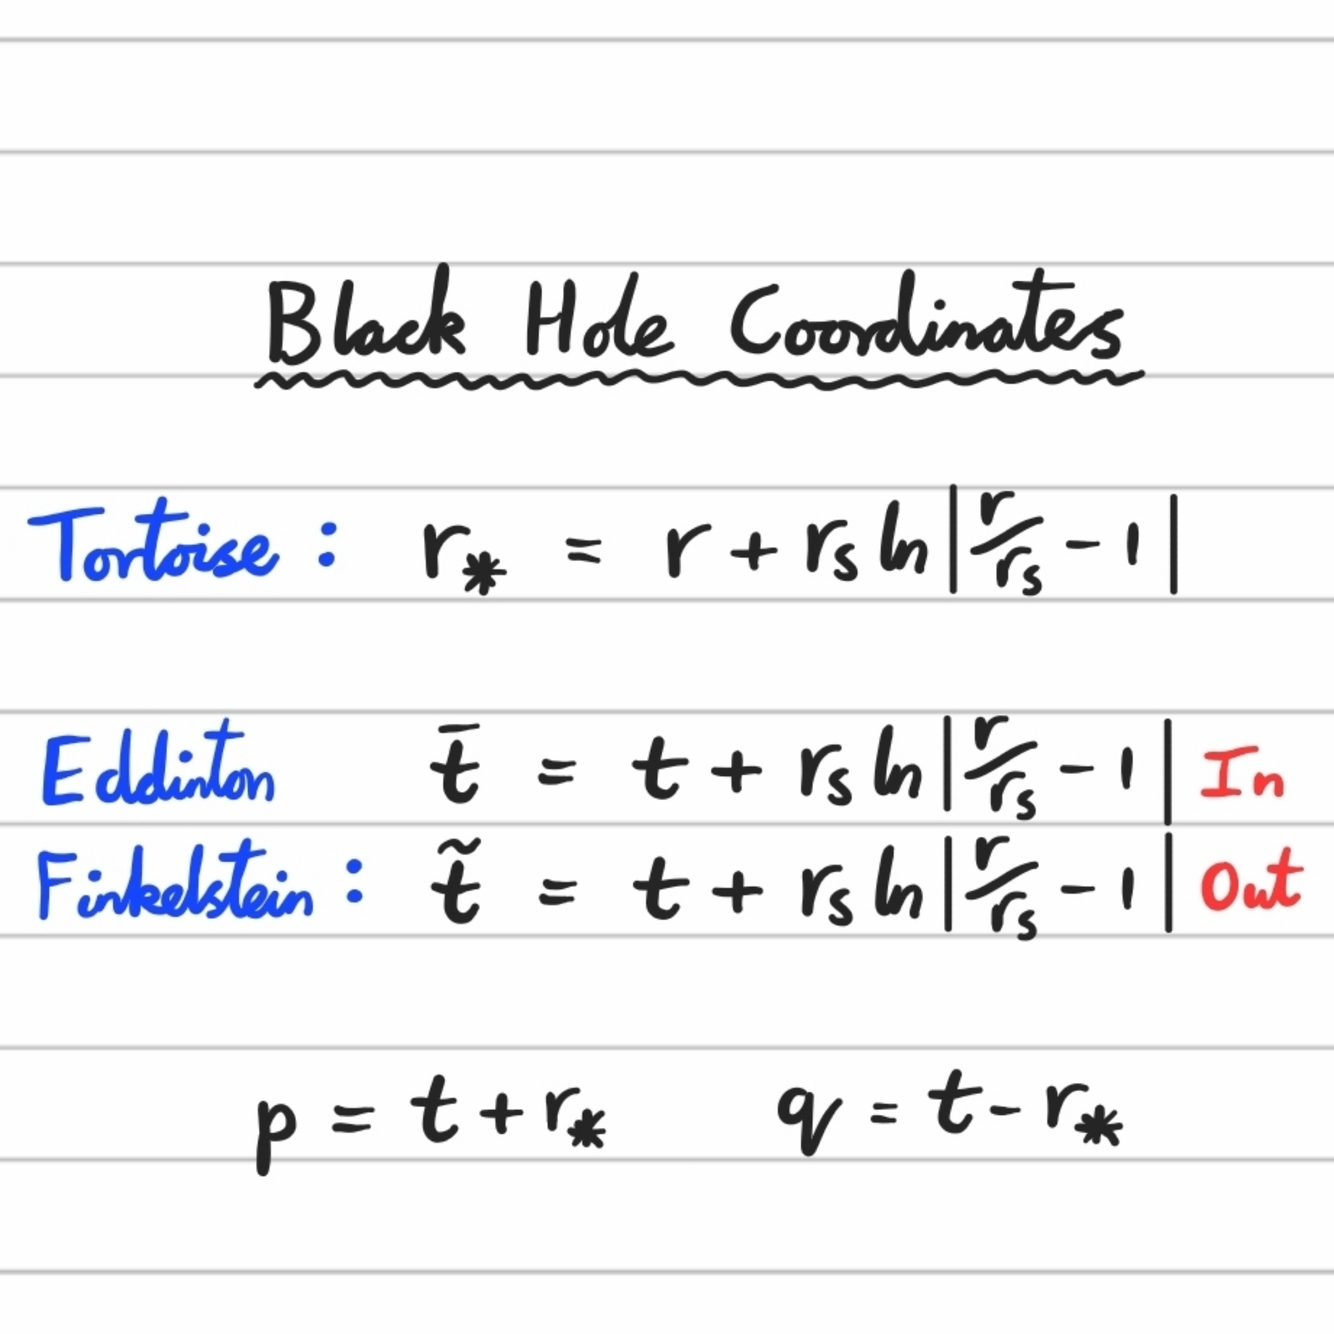 Black Hole Coordinates
Tortoise : r* = r + rs ln | r/rs - 1 |
Eddinton t̄ = t + rs ln | r/rs - 1 | In
Finkelstein : t̃ = t + rs ln | r/rs - 1 | Out
p = t + r* q = t - r*